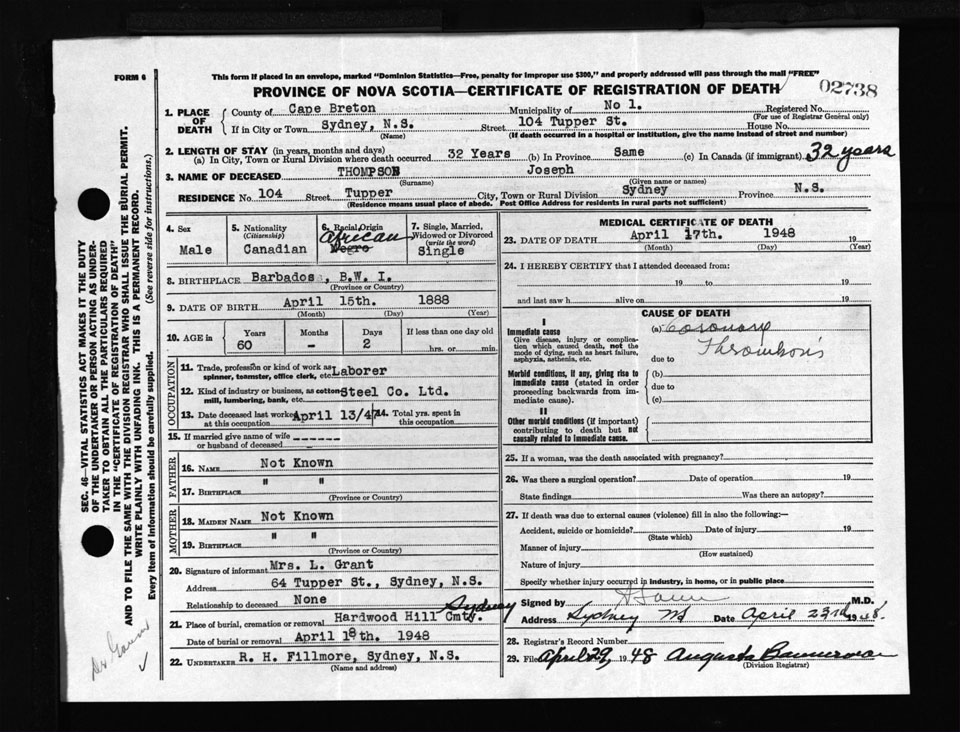 FORM 6
This form if placed in an envelope, marked "Dominion Statistics—Free, penalty for improper use $300," and properly addressed will pass through the mail "FREE"
PROVINCE OF NOVA SCOTIA—CERTIFICATE OF REGISTRATION OF DEATH
02738
1. PLACE OF DEATH
County of Cape Breton Municipality of No 1. Registered No.
(For use of Registrar General only)
If in City or Town Sydney, N.S. Street 104 Tupper St. House No.
(Name) (If death occurred in a hospital or institution, give the name instead of street and number)
2. LENGTH OF STAY (in years, months and days)
(a) In City, Town or Rural Division where death occurred 32 Years (b) In Province Same (c) In Canada (if immigrant) 32 years
3. NAME OF DECEASED THOMPSON Joseph
(Surname) (Given name or names)
RESIDENCE No 104 Street Tupper City, Town or Rural Division Sydney Province N.S.
(Residence means usual place of abode. Post Office Address for residents in rural parts not sufficient)
4. Sex
Male
5. Nationality
(Citizenship)
Canadian
6. Racial Origin
African
Negro
7. Single, Married, Widowed or Divorced
(write the word)
Single
8. BIRTHPLACE Barbados, B.W. I.
(Province or Country)
9. DATE OF BIRTH April 15th. 1888
(Month) (Day) (Year)
10. AGE in
Years Months Days If less than one day old
60 - 2 hrs. or min.
OCCUPATION
11. Trade, profession or kind of work as spinner, teamster, office clerk, etc. Laborer
12. Kind of industry or business, as cotton mill, lumbering, bank, etc. Steel Co. Ltd.
13. Date deceased last worked at this occupation April 13/47
14. Total yrs. spent in this occupation
15. If married give name of wife or husband of deceased ------
FATHER
16. NAME Not Known
17. BIRTHPLACE " "
(Province or Country)
MOTHER
18. MAIDEN NAME Not Known
19. BIRTHPLACE " "
(Province or Country)
20. Signature of informant Mrs. L. Grant
Address 64 Tupper St., Sydney, N.S.
Relationship to deceased None
21. Place of burial, cremation or removal Hardwood Hill Cmty. Sydney
Date of burial or removal April 18th. 1948
22. UNDERTAKER R. H. Fillmore, Sydney, N.S.
(Name and address)
MEDICAL CERTIFICATE OF DEATH
23. DATE OF DEATH April 17th. 1948 19
(Month) (Day) (Year)
24. I HEREBY CERTIFY that I attended deceased from:
19 to 19
and last saw h alive on 19
CAUSE OF DEATH
I
Immediate cause
Give disease, injury or complication which caused death, not the mode of dying, such as heart failure, asphyxia, asthenia, etc.
(a) Coronary
Thrombosis
due to
Morbid conditions, if any, giving rise to immediate cause (stated in order proceeding backwards from immediate cause).
(b)
due to
(c)
II
Other morbid conditions (if important) contributing to death but not causally related to immediate cause.
25. If a woman, was the death associated with pregnancy?
26. Was there a surgical operation? Date of operation 19
State findings Was there an autopsy?
27. If death was due to external causes (violence) fill in also the following:—
Accident, suicide or homicide? Date of injury 19
(State which)
Manner of injury
(How sustained)
Nature of injury
Specify whether injury occurred in industry, in home, or in public place
Signed by M.D.
Address Sydney NS Date April 23rd 1948.
28. Registrar's Record Number
29. Filed April 29, 1948 Augusta Bannerman
(Division Registrar)
SEC. 46—VITAL STATISTICS ACT MAKES IT THE DUTY
OF THE UNDERTAKER OR PERSON ACTING AS UNDERTAKER TO OBTAIN ALL THE PARTICULARS REQUIRED
IN THE "CERTIFICATE OF REGISTRATION OF DEATH"
AND TO FILE THE SAME WITH THE DIVISION REGISTRAR WHO SHALL ISSUE THE BURIAL PERMIT.
WRITE PLAINLY WITH UNFADING INK. THIS IS A PERMANENT RECORD.
Every item of information should be carefully supplied. (See reverse side for instructions.)